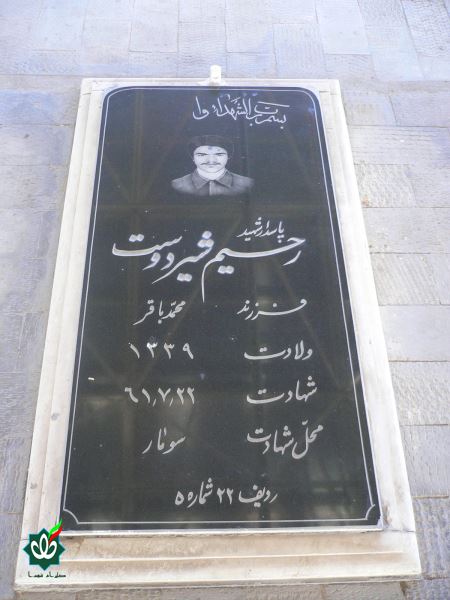 بسم رب الشهداء و
پاسدار شهید
رحیم فقیر دوست
فرزند محمد باقر
ولادت ۱۳۳۹
شهادت ۶۱٫۷٫۲۲
محل شهادت سومار
ردیف ۲۲ شماره ۵